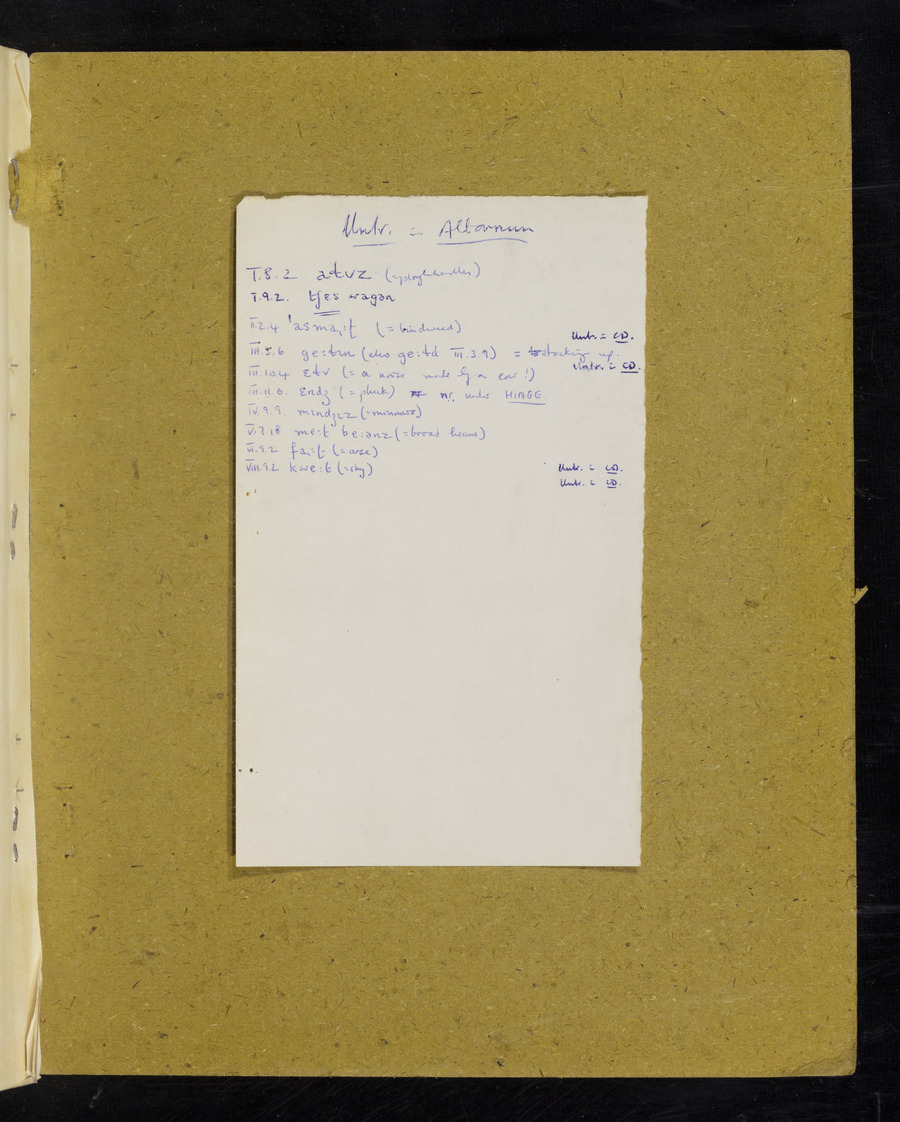 Untr. = Altarnun
I.8.2 atvz (= ploughhandles)
I.9.2. tʃɛs wagən
II.2.4 'asma,:t (= bindweed) Untr. = CD.
III.5.6 ge:trn (also ge:td III.3.9) = stocking up. Untr. = CD.
III.10.4 ɛtv (= a noise made by a cow!)
III.11.6. ɛndʒ (= pluck) nr. under HINGE
IV.9.9. mɪndʒɪz (= minnows)
V.7.18 me:t be:ənz (= broad beans)
VI.9.2 fa,:t (= arse) Untr. = CD.
VIII.9.2 kwe:t (= shy) Untr. = CD.